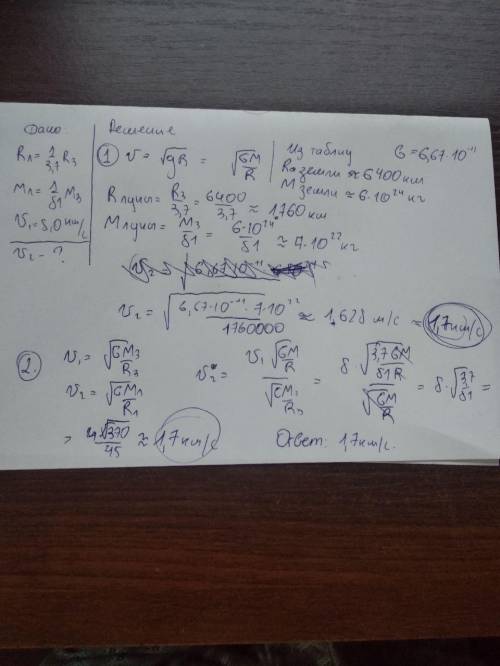 Дано:
Rл = 1/3,7 Rз
Mл = 1/81 Mз
v₁ = 8,0 км/с
v₂ - ?
Решение
① v = √gR = √(GM/R)
Из таблиц G = 6,67·10⁻¹¹
R земли ≈ 6400 км
M земли ≈ 6·10²⁴ кг
R луны = Rз/3,7 = 6400/3,7 ≈ 1760 км
M луны = Mз/81 = 6·10²⁴/81 ≈ 7·10²² кг
v₂ = √(6,67·10⁻¹¹·7·10²²/1760000) ≈ 1,628 м/с ≈ 1,7 км/с
2. v₁ = √(GMз/Rз)
v₂ = √(GMл/Rл)
v₂ = v₁ √(GM/R) / √(GM₁/Rл) = 8 √(3,7GM/81R) / √(GM/R) = 8·√(3,7/81) =
= 4√370/45 ≈ 1,7 км/с
Ответ: 1,7 км/с.